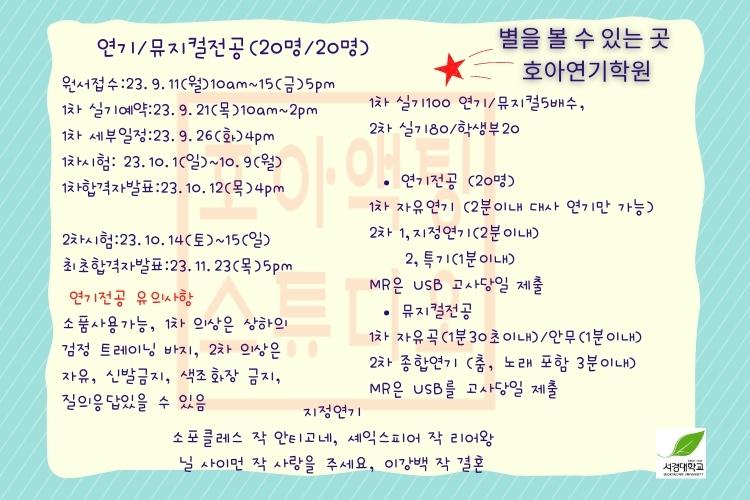 연기/뮤지컬전공(20명/20명)
별을 볼 수 있는 곳
호아연기학원
원서접수:23.9.11(월)10am~15(금)5pm
1차 실기예약:23.9.21(목)10am~2pm
1차 세부일정:23.9.26(화)4pm
1차시험: 23.10.1(일)~10.9(월)
1차합격자발표:23.10.12(목)4pm
2차시험:23.10.14(토)~15(일)
최초합격자발표:23.11.23(목)5pm
연기전공 유의사항
소품사용가능, 1차 의상은 상하의
검정 트레이닝 바지, 2차 의상은
자유, 신발금지, 색조화장 금지,
질의응답있을 수 있음
1차 실기100 연기/뮤지컬5배수,
2차 실기80/학생부20
• 연기전공 (20명)
1차 자유연기 (2분이내 대사 연기만 가능)
2차 1,지정연기(2분이내)
2,특기(1분이내)
MR은 USB 고사당일 제출
• 뮤지컬전공
1차 자유곡(1분30초이내)/안무(1분이내)
2차 종합연기 (춤, 노래 포함 3분이내)
MR은 USB를 고사당일 제출
지정연기
소포클레스 작 안티고네, 셰익스피어 작 리어왕
닐 사이먼 작 사랑을 주세요, 이강백 작 결혼
호아액팅
스튜디오
서경대학교